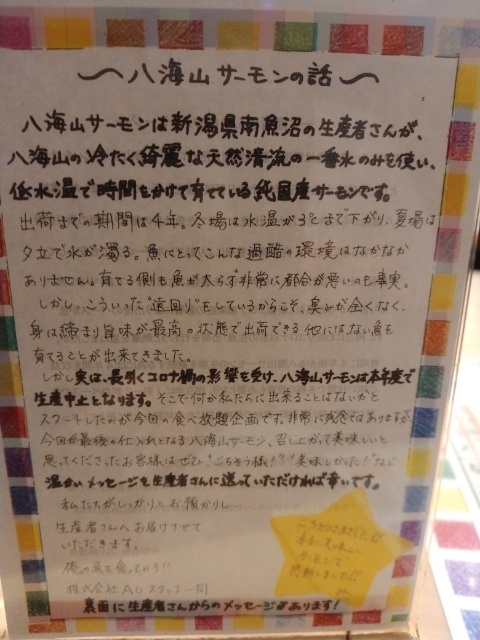 〜八海山サーモンの話〜
八海山サーモンは新潟県南魚沼の生産者さんが、
八海山の冷たく綺麗な天然清流の一番水のみを使い、
低水温で時間をかけて育てている純国産サーモンです。
出荷までの期間は4年。冬場は水温が3℃まで下がり、夏場は
夕立で水が濁る。魚にとってこんな過酷の環境はなかなか
ありません。育てる側も魚が太らず非常に都合が悪いのも事実。
しかし、こういった"遠回り"をしているからこそ、臭みが全くなく、
身は締まり旨味が最高の状態で出荷できる他にはない魚を
育てることが出来てきました。
しかし実は、長引くコロナ禍の影響を受け、八海山サーモンは本年度で
生産中止となります。そこで何か私たちに出来ることはないかと
スタートしたのが今回の食べ放題企画です。非常に残念ではありますが
今回が最後の仕入れとなる八海山サーモン、召し上がって美味しいと
思ってくださったお客様はぜひ"ごちそう様!!""美味しかった!!"など
温かいメッセージを生産者さんに送っていただければ幸いです。
私たちがしっかりとお預かりし
生産者さんへお届けさせて
いただきます。
俺の魚を食ってみろ!!
株式会社AOスタッフ一同
ごちそうさまでした!!
本当に美味しい
サーモンで
感動しました!!
裏面に生産者さんからのメッセージがあります!